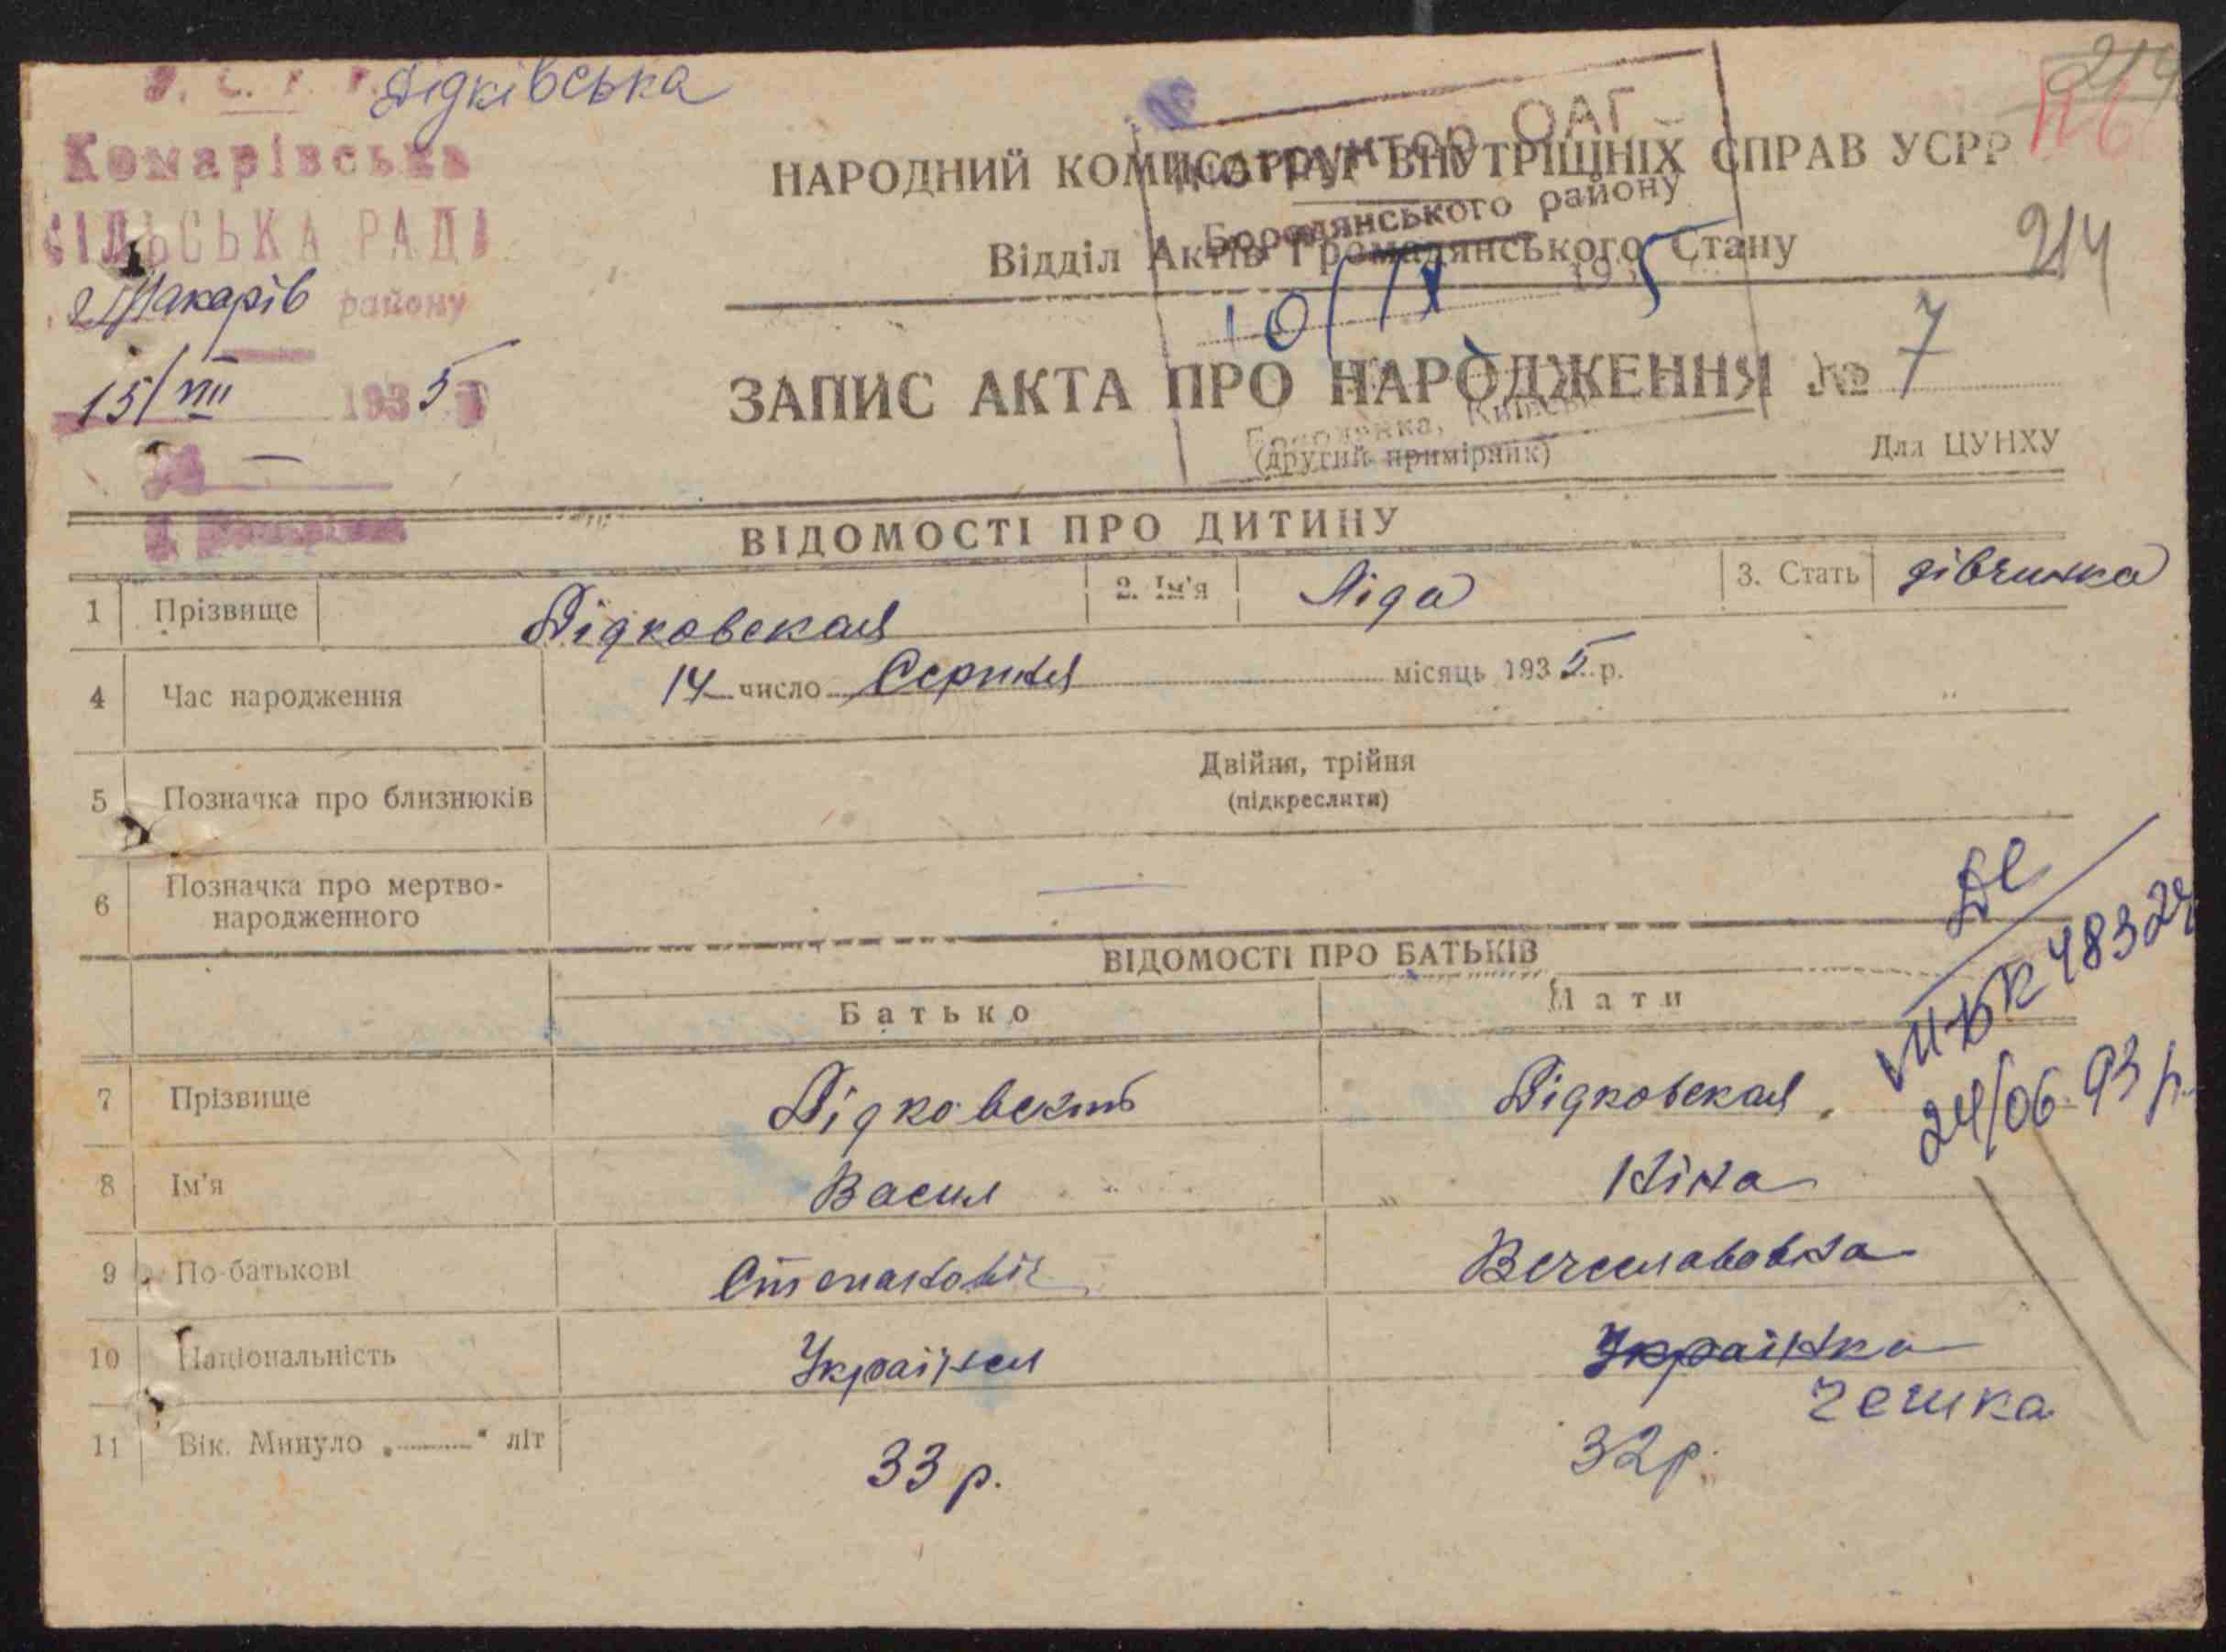 У. С. Р. Р. Дідківська
Комарівська
СІЛЬСЬКА РАДА
Макарів району
15/VIII 1935
НАРОДНИЙ КОМІСАРІАТ ВНУТРІШНІХ СПРАВ УСРР
Відділ Актів Громадянського Стану
Інструктор ОАГ
Бородянського району
10/IX 1935
214
214
ЗАПИС АКТА ПРО НАРОДЖЕННЯ № 7
Бородянка, Київськ
(другий примірник)
Для ЦУНХУ
ВІДОМОСТІ ПРО ДИТИНУ
1 Прізвище Дідковская 2. Ім'я Ліда 3. Стать дівчинка
4 Час народження 14 число Серпня місяць 1935 р.
5 Позначка про близнюків Двійня, трійня
(підкреслити)
6 Позначка про мертво-
народженного —
ВІДОМОСТІ ПРО БАТЬКІВ
Батько Мати
7 Прізвище Дідковский Дідковская
8 Ім'я Васил Ніна
9 По-батькові Степановіч Вечеславовна
10 Національність Українец Українка
чешка
11 Вік. Минуло „ “ літ 33 р. 32 р.
24/06.93 р.